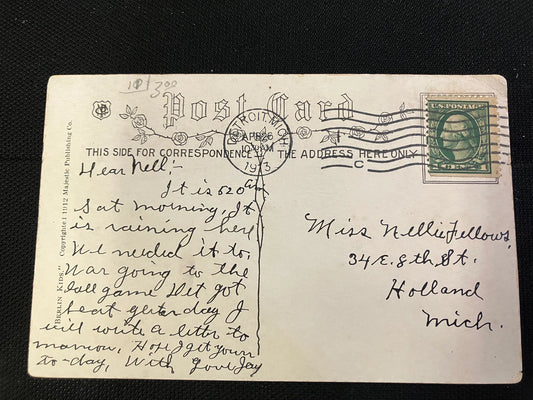 3.00
Post Card
THIS SIDE FOR CORRESPONDENCE
THE ADDRESS HERE ONLY
DETROIT, MICH.
APR 26
10-AM
1913
C
U.S. POSTAGE
"BERLIN KIDS" Copyright 1912 Majestic Publishing Co.
Dear Nell:-
It is 520 am
Sat morning, It
is raining here
We needed it to,
War going to the
ball game Det got
beat yesterday I
will write a letter to
morrow, Hope I get yours
to-day, With Love Jay
Miss Nellie Fellows,
34 E. 8th St.
Holland
Mich.